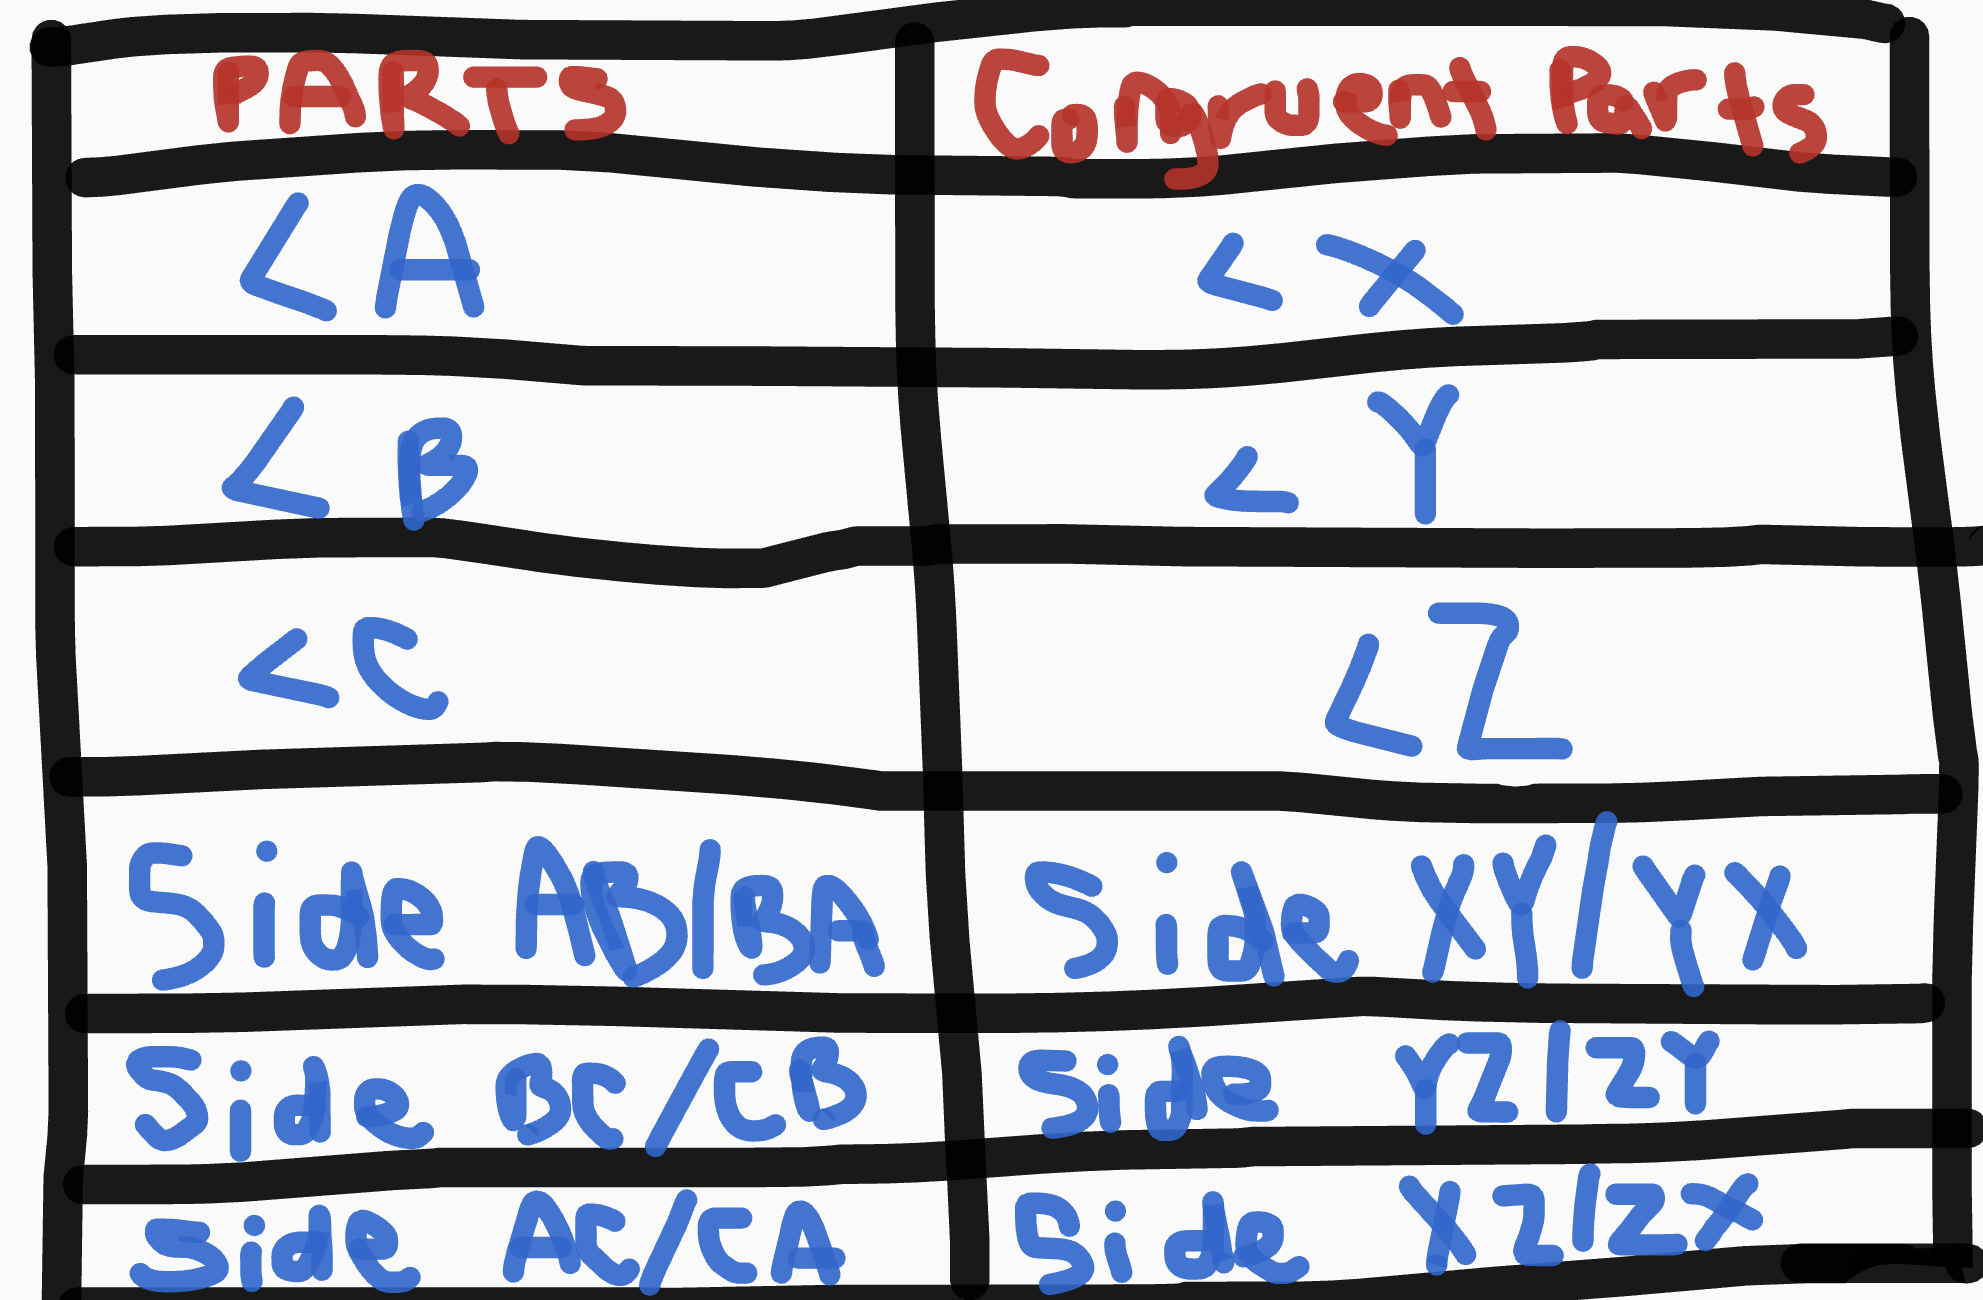 PARTS Congruent Parts
<A <X
<B <Y
<C <Z
Side AB/BA Side XY/YX
Side BC/CB Side YZ/ZY
Side AC/CA Side XZ/ZX